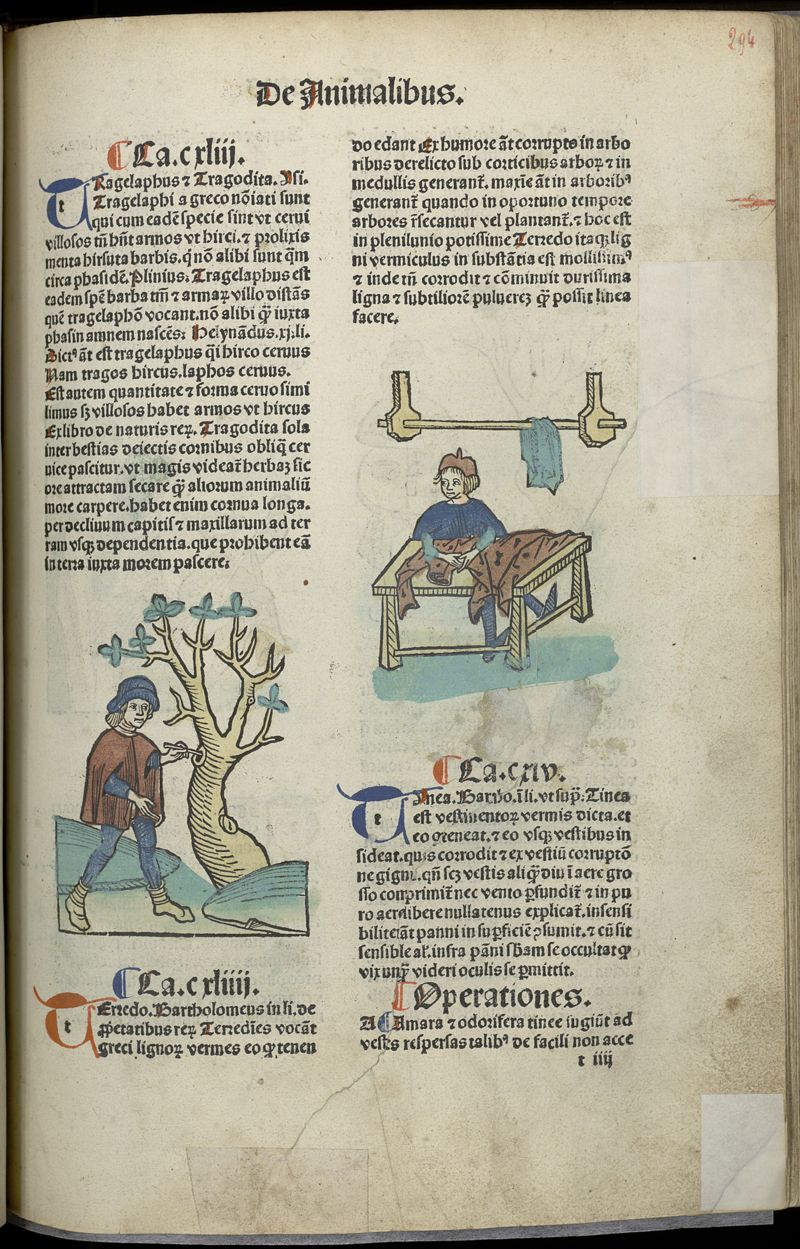 294
De Animalibus.
¶ Ca. cxliij.
TRagelaphus ⁊ Tragodita. Isi.
Tragelaphi a greco nōiati sunt
qui cum eadē specie sint vt cerui
villosos tñ hñt armos vt hirci. ⁊ prolixis
menta hirsuta barbis. q̄ nō alibi sunt q̄m
circa phasidē. Plinius. Tragelaphus est
eadem spē barba tm̄ ⁊ armaꝝ villo distās
quē tragelaphō vocant. nō alibi q̄ꝫ iuxta
phasin amnem nascēs. Helynādus. xj. li.
Dictꝰ āt est tragelaphus q̄i hirco ceruus
Nam tragos hircus. laphos ceruus.
Est autem quantitate ⁊ forma ceruo simi
limus sꝫ villosos habet armos vt hircus
Ex libro de naturis reꝝ. Tragodita sola
inter bestias deiectis cornibus obliq̄ cer
uice pascitur. vt magis videat̄ herbaꝫ sic
ore attractam secare q̄ꝫ aliorum animaliū
more carpere. habet enim cornua longa.
per decliuum capitis ⁊ maxillarum ad ter
ram vsqꝫ dependentia. que prohibent eā
in terra iuxta morem pascere.
¶ Ca. cxliiij.
TErredo. Bartholomeus in li. de
ꝓpetatibus reꝝ Terredīes vocāt
greci lignoꝝ vermes eo ꝙ tenen
do edant Ex humore āt corrupto in arbo
ribus derelicto sub corticibus arboꝝ ⁊ in
medullis generant̄. maxīe āt in arboribꝰ
generant̄ quando in oportuno tempore
arbores r̄secantur vel plantant̄. ⁊ hoc est
in plenilunio potissime Terredo itaqꝫ lig
ni vermiculus in substātia est mollissimꝰ
⁊ inde tñ corrodit ⁊ cōminuit durissima
ligna ⁊ subtiliorē puluereꝫ q̄ꝫ possit linea
facere.
¶ Ca. cxlv.
TInea. Bartho. ī li. vt supᷓ. Tinea
est vestimentoꝝ vermis dicta. et
eo ꝙ teneat. ⁊ eo vsqꝫ vestibus in
sideat. quis corrodit ⁊ ex vestiū corruptō
ne gignit. qñ scꝫ vestis aliq̄ diu ī aere gro
sso conprimit̄ nec vento ꝑfundit̄ ⁊ in pu
ro aere libere nullatenus explicat̄. insensi
biliter āt panni in suꝑficiē ꝯsumit. ⁊ cū sit
sensibile aīal. infra pāni sbam se occultat ꝙ
vix unꝙ̄ videri oculis se ꝑmittit.
¶ Operationes.
A ¶ Amara ⁊ odorifera tinee fugiūt ad
vestes respersas talibꝰ de facili non acce
t iiij